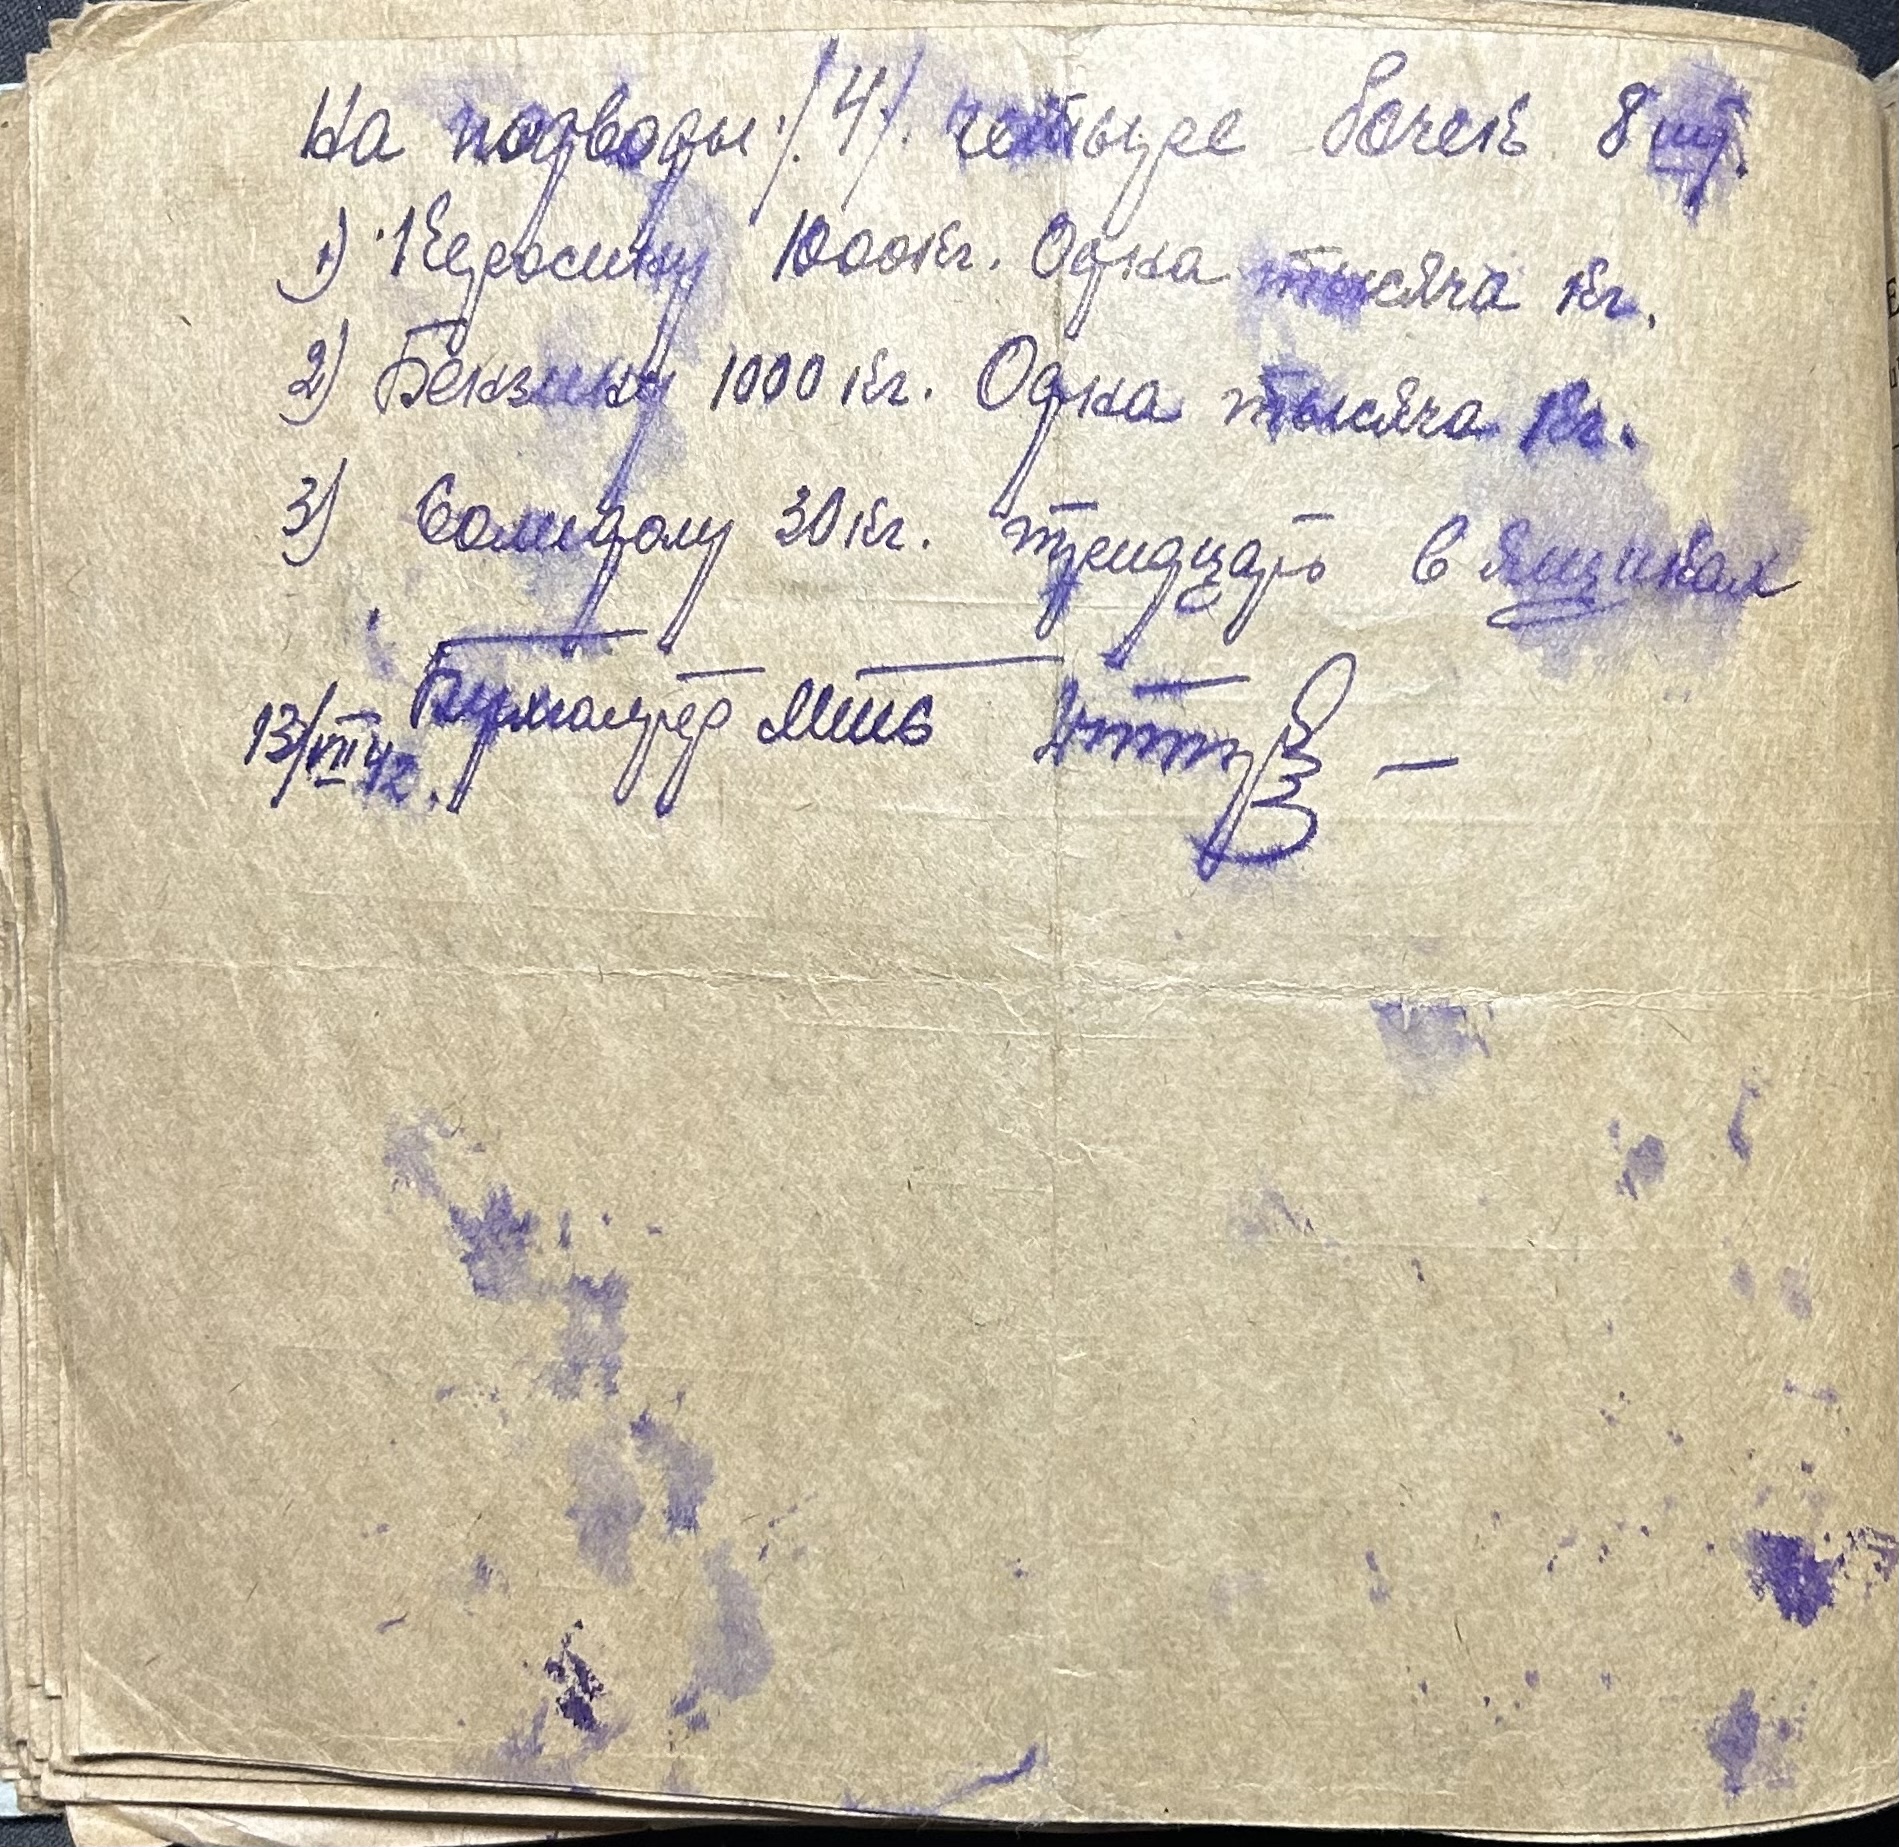 На подводы /4/. четыре бочек 8 шт.
1) Керосину 1000 кг. Одна тысяча кг.
2) Бензину 1000 кг. Одна тысяча кг.
3) Солидолу 30 кг. тридцать в ящиках
Бухгалтер
13/VIII 42.